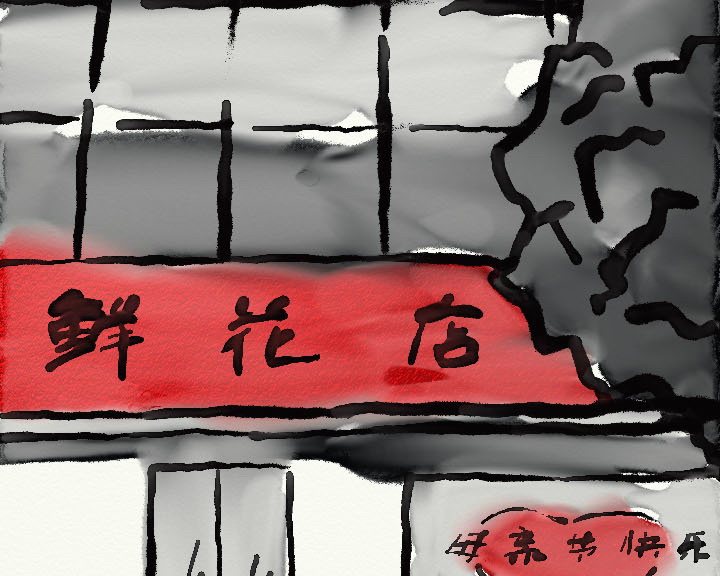 鲜花店
母亲节快乐